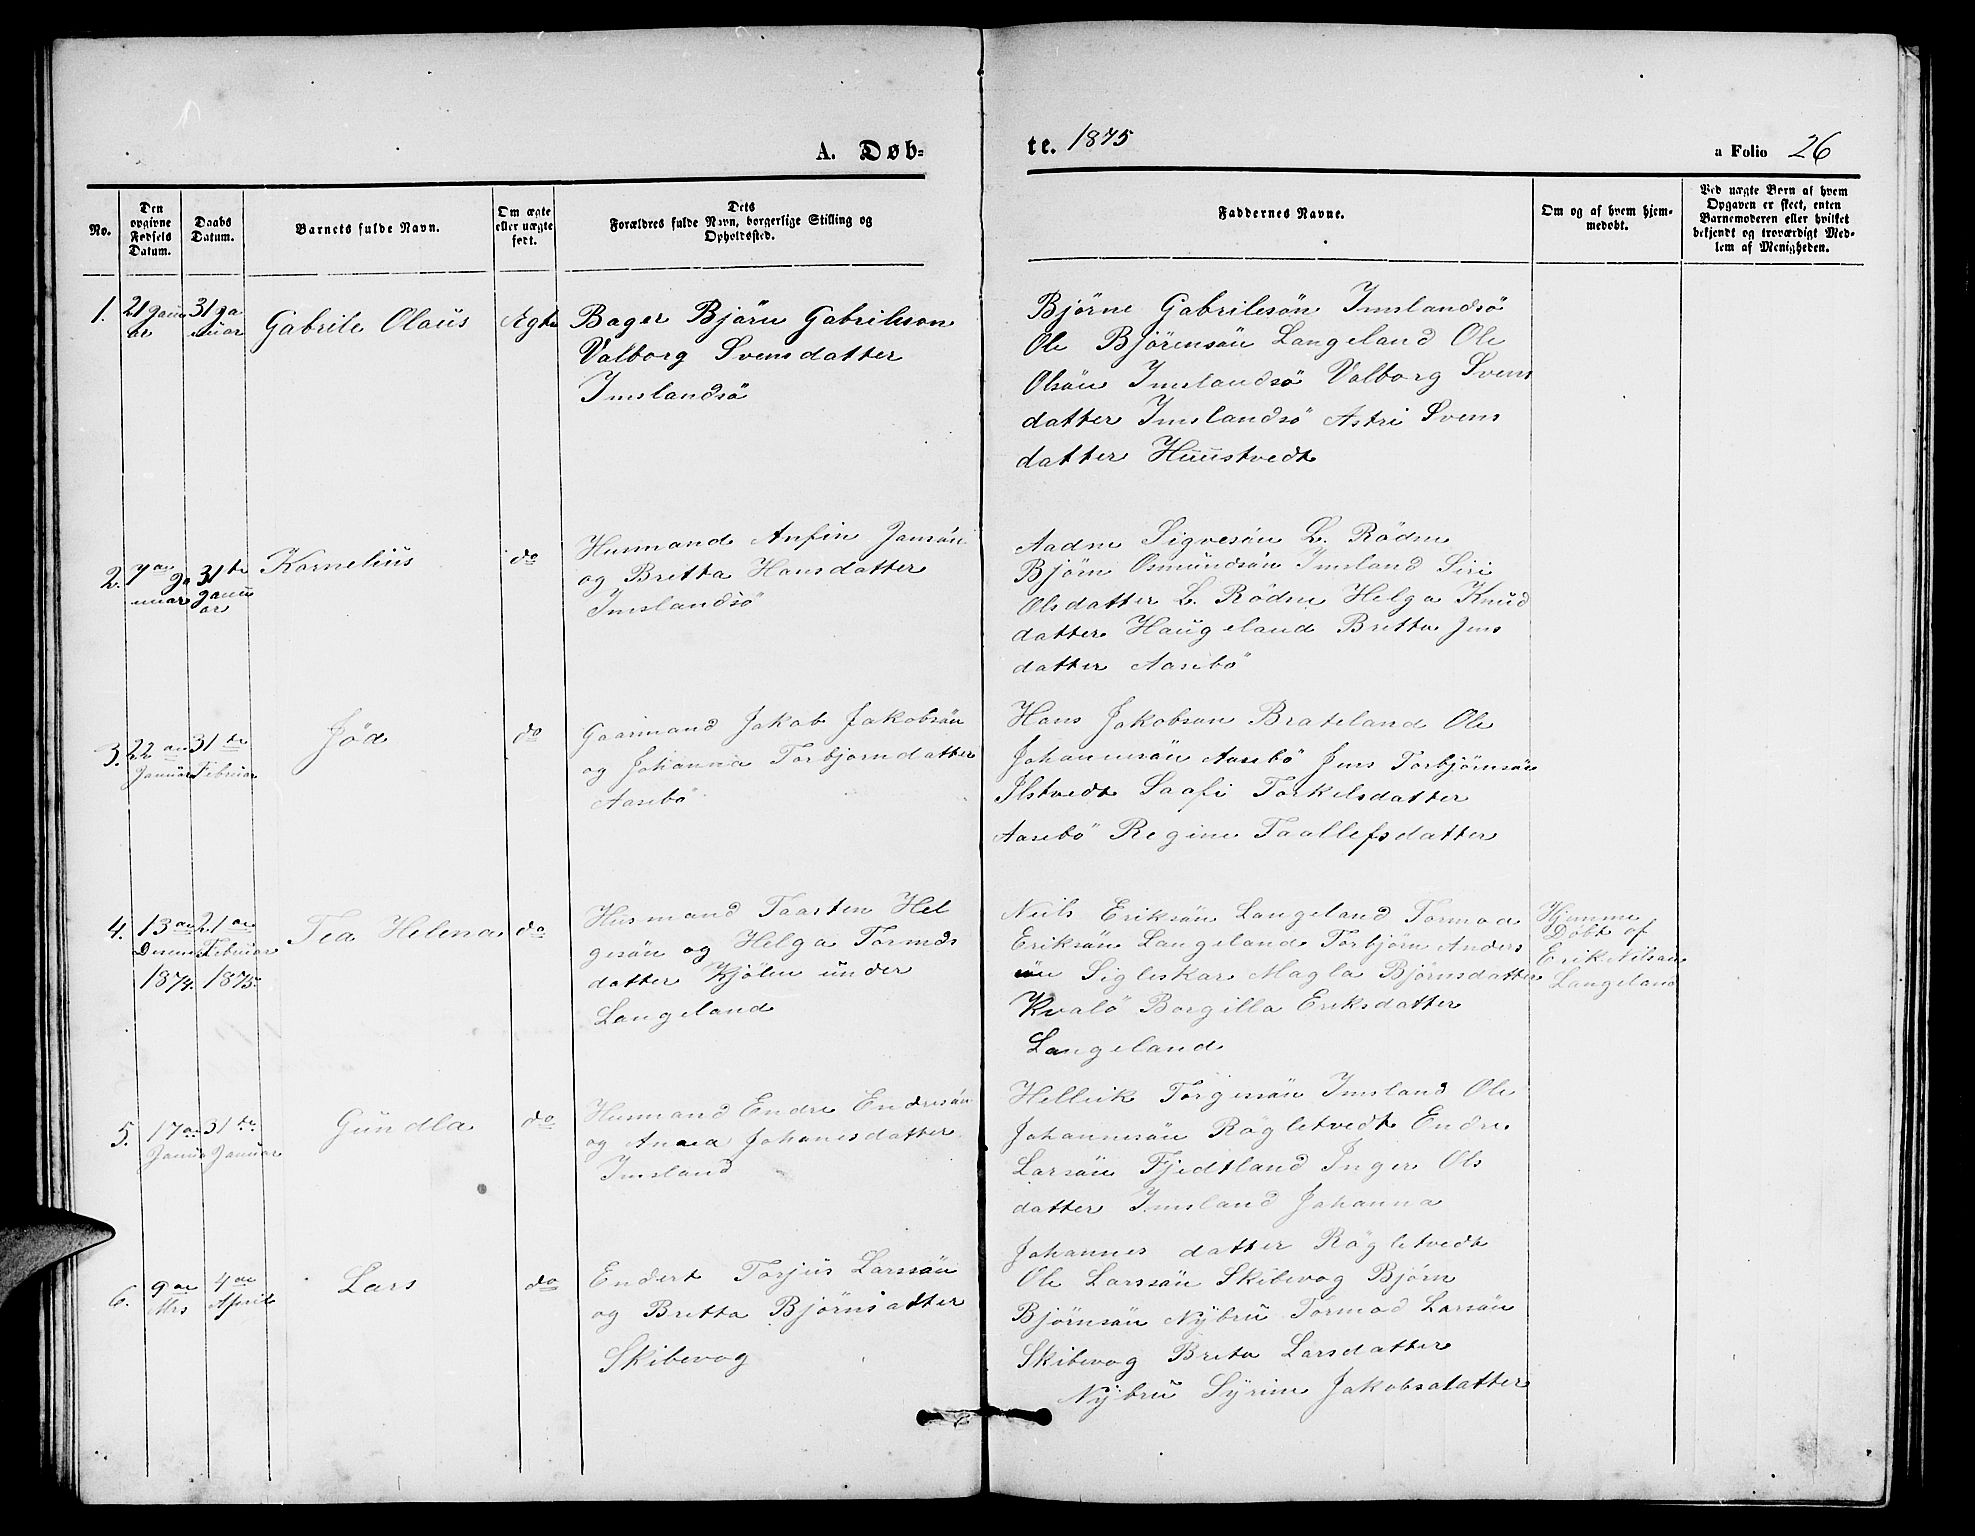 A. Døb=
te. 1875
a Folio 26
No.
Den opgivne Fødsels Datum.
Daabs Datum.
Barnets fulde Navn.
Om ægte eller uægte født.
Dets Forældres fulde Navn, borgerlige Stilling og Opholdssted.
Faddernes Navne.
Om og af hvem hjemmedøbt.
Ved uægte Børn af hvem Opgaven er skeet, enten Barnemoderen eller hvilket bekjendt og troværdigt Medlem af Menigheden.
1.
21 Janu
ar
31 Ja
nuar
Gabriel Olaus
Ægte
Bager Bjørn Gabrilsson
Valborg Svensdatter
Imslandsö
Bjørne Gabrilesön Imslandsö
Ole Bjørensön Langeland Ole
Olsön Imslandsö Valborg Svens
datter Imslandsö Astri Svens
datter Huustvedt
2.
7 an
Ja
nuar
31 te
Janu
ar
Kornelius
do
Husmand Anfin Jansön
og Britta Hansdatter
Imslandsö
Aadne Sigvesön L. Rödne
Bjørn Osmundsön Imsland Siri
Olsdatter L. Rödne Helga Knud
datter Haugeland Britta Jens
datter Aasebö
3.
22 an
Januar
31 te
Februar
Jød
do
Gaarmand Jakob Jakobsön
og Johanna Torbjorndatter
Aasebö
Hans Jakobson Brateland Ole
Johannesön Aasebö Jens Torbjørnsön
Ilstvedt Saafi Torkelsdatter
Aasebö Regine Taallefsdatter
4.
13 an
1874.
21 an
Februar
1875.
Tea Helena
do
Husmand Taarten Hel
gesön og Helga Tormds
datter Kjölen under
Langeland
Nils Eriksön Langeland Tormod
Eriksön Langeland Torbjørn Anders
ön Sigleskar Magla Bjørnsdatter
Kvalö Borgilla Eriksdatter
Langeland
Hjemme
Døbt af
Erik Nilsön
Langeland
5.
17 an
Januar
31 te
Januar
Gundla
do
Husmand Endre Endresön
og Anna Johanesdatter
Imsland
Helleik Torgersön Imsland Ole
Johannesön Rögletvedt Endre
Larsön Fjedtland Inger Ols
datter Imsland Johanna
Johannes datter Rögletvedt
6.
9 an
Mrs
4 de
April
Lars
do
Enderst Torjus Larssön
og Britta Bjørnsdatter
Skibevog
Ole Larssön Skibevog Bjørn
Bjørnsön Nybru Tormod Larsön
Skibevog Brita Larsdatter
Nybru Syrine Jakobsdatter